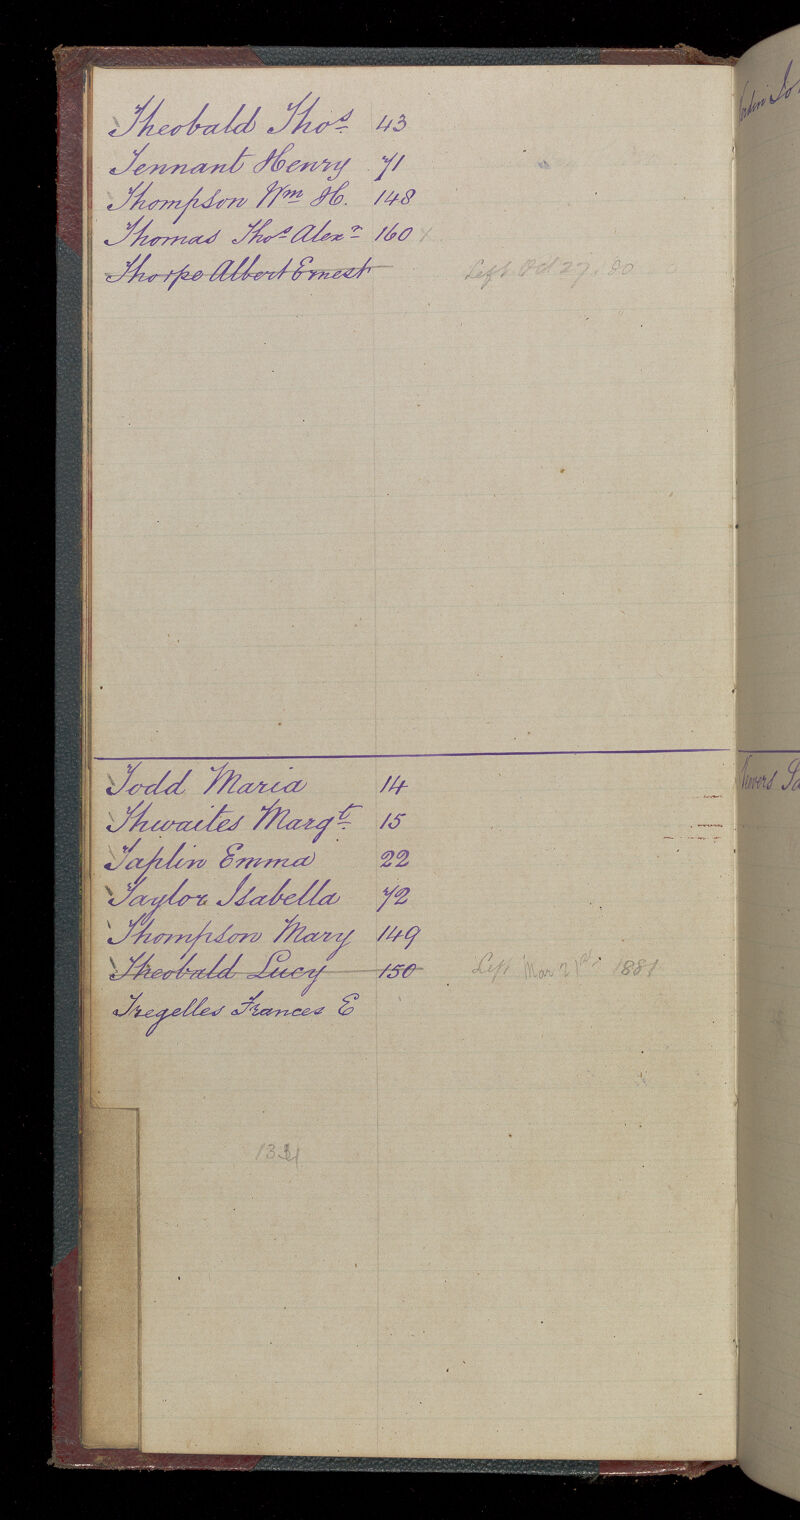 Theobald Thos 43
Tennant Henry 71
Thompson Wm H. 148
Thomas Thos Alexr 160 x
Thorpe Albert Ernest Left Oct 27. 80
Todd Maria 14
Thwaites Margt 15
Taplin Emma 22
Taylor Isabella 72
Thompson Mary 149
Theobald Lucy 150 Left Mar 21st 1881
Tregelles Frances E
Vevers